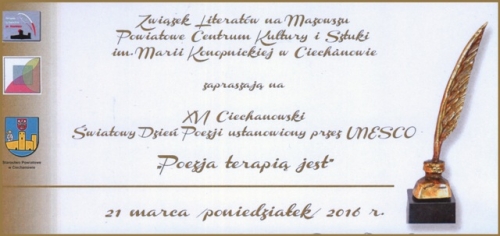 Związek Literatów na Mazowszu
Powiatowe Centrum Kultury i Sztuki
im. Marii Konopnickiej w Ciechanowie
zapraszają na
XVI Ciechanowski
Światowy Dzień Poezji ustanowiony przez UNESCO
„Poezja terapią jest”
21 marca /poniedziałek/ 2016 r.
Starostwo Powiatowe
w Ciechanowie